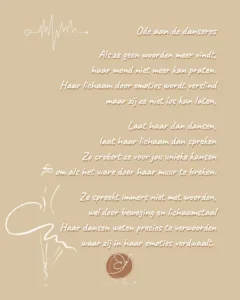 Ode aan de danseres
Als ze geen woorden meer vindt,
haar mond niet meer kan praten.
Haar lichaam door emoties wordt verslind
maar zij ze niet los kan laten.
Laat haar dan dansen,
laat haar lichaam dan spreken
Zo creëert ze voor jou unieke kansen
om als het ware door haar muur te breken.
Ze spreekt immers niet met woorden,
wel door beweging en lichaamstaal
Haar dansen weten precies te verwoorden
waar zij in haar emoties verdwaalt.